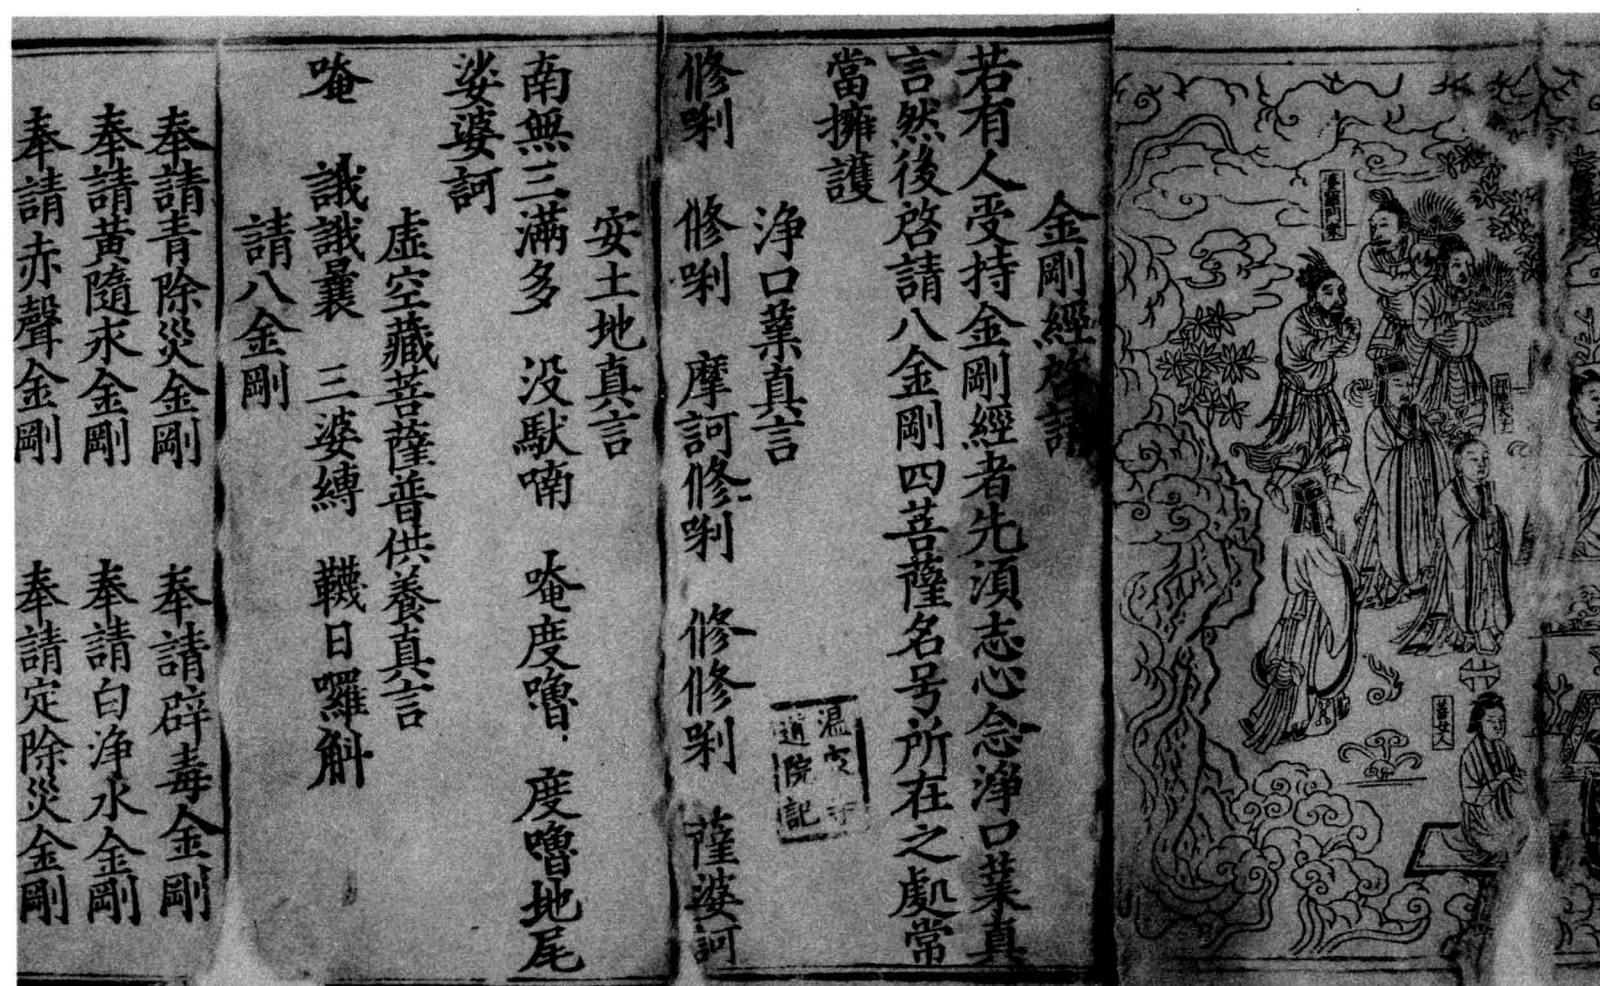 金剛經啓請
若有人受持金剛經者先湏志心念淨口業真
言然後啓請八金剛四菩薩名号所在之處常
當擁護
淨口業真言
修唎 修唎 摩訶修唎 修修唎 薩婆訶
安土地真言
南無三滿多 没馱喃 唵度嚕 度嚕地尾
娑婆訶
虛空藏菩薩普供養真言
唵 誐誐曩 三婆縛 韈日囉斛
請八金剛
奉請青除災金剛 奉請辟毒金剛
奉請黃隨求金剛 奉請白淨水金剛
奉請赤聲金剛 奉請定除災金剛
道院記
善女人